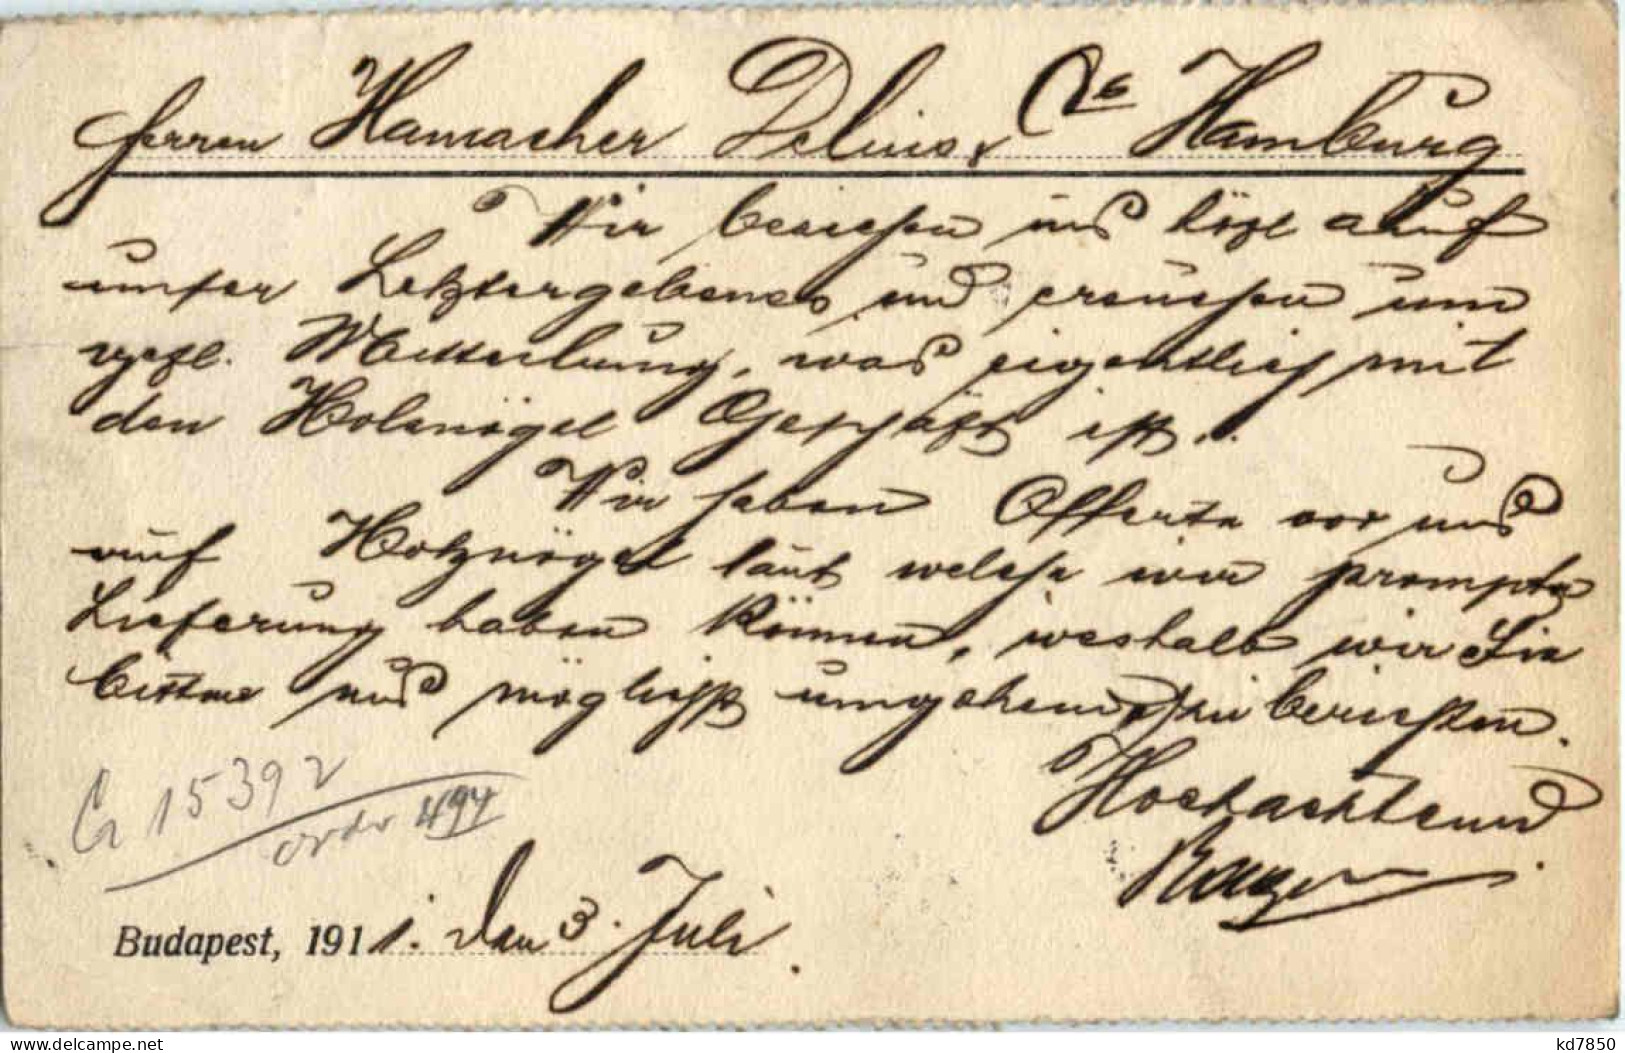 Herren Hamacher Delius & Co Hamburg
Wir beziehen uns höfl auf
unser Letztergebenes und ersuchen um
gefl. Mitteilung, was eigentlich mit
den Holznägel Geschäft ist.
Wir haben Offerte vor uns
auf Holznägel laut welche wir prompte
Lieferung haben können, weshalb wir Sie
bitten uns möglichst umgehend zu berichten.
Hochachtend
15392
ordr 494
Budapest, 1911. den 3. Juli.
kd7850